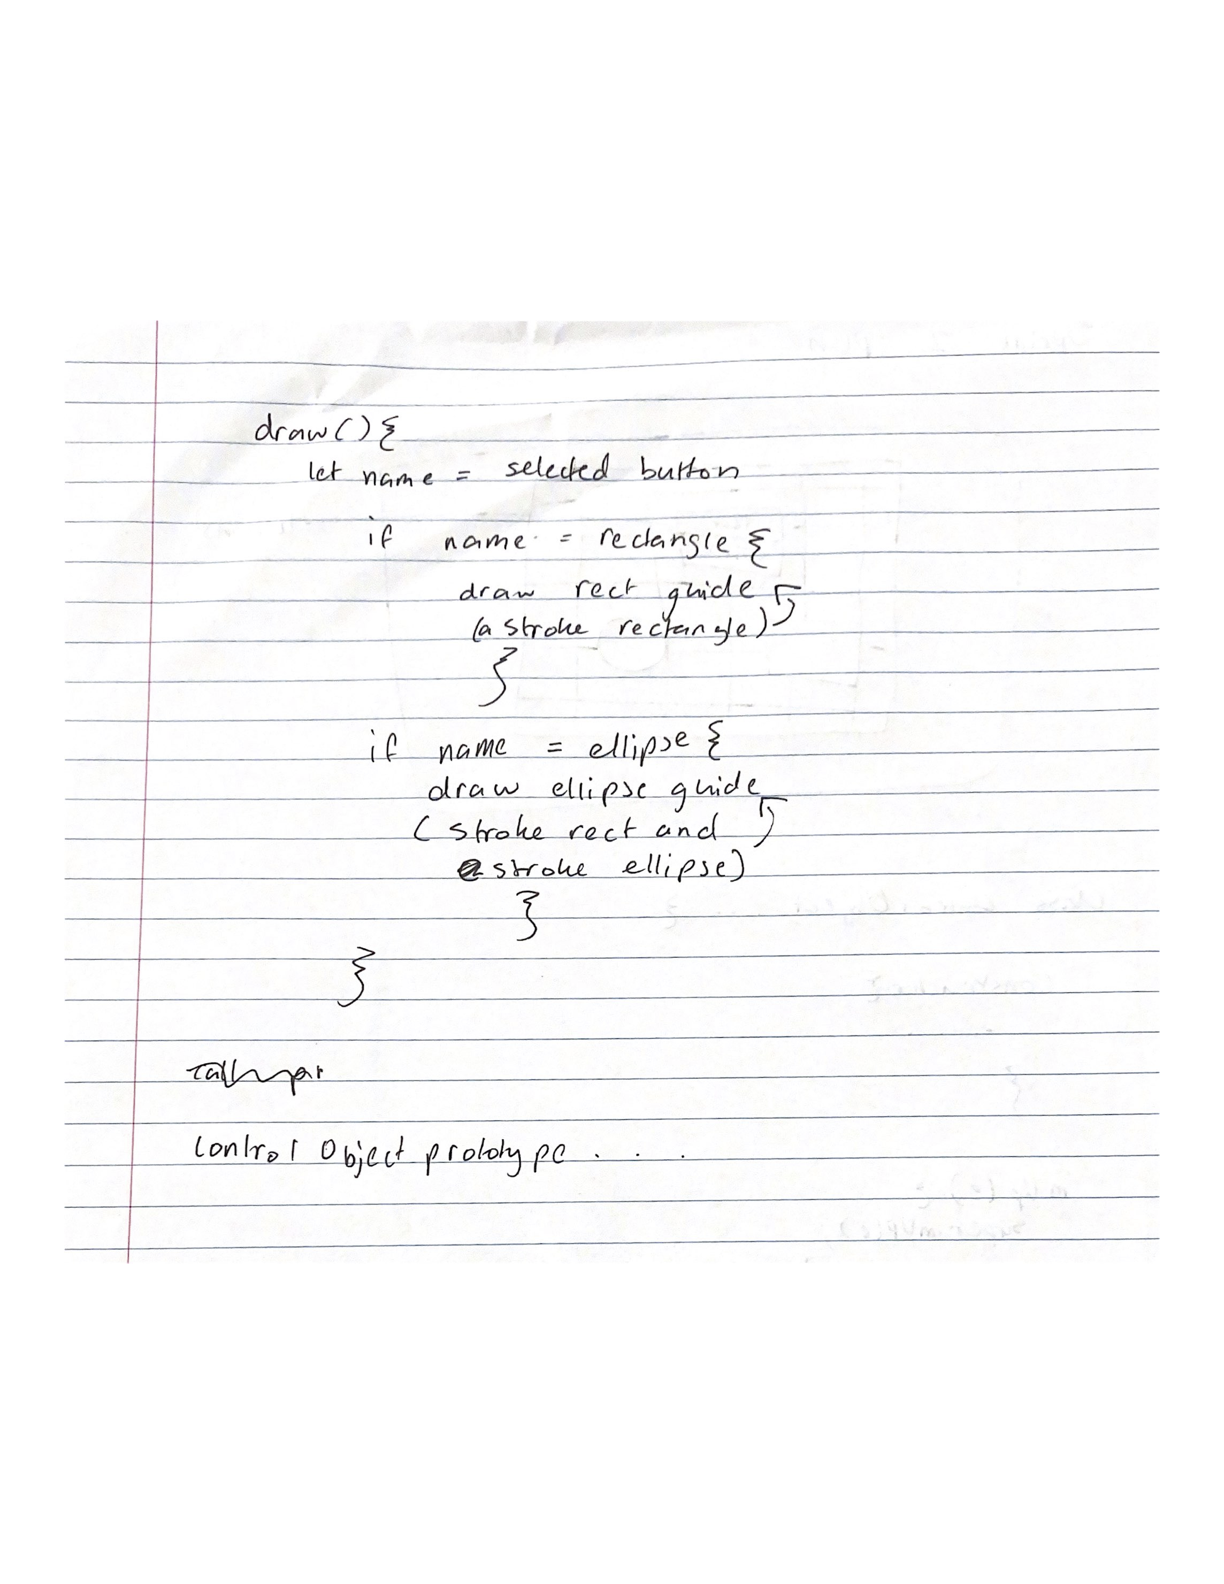 draw() {
let name = selected button
if name = rectangle {
draw rect guide
(a stroke rectangle)
}
if name = ellipse {
draw ellipse guide
( stroke rect and
stroke ellipse)
}
}
Control Object prototype . . .